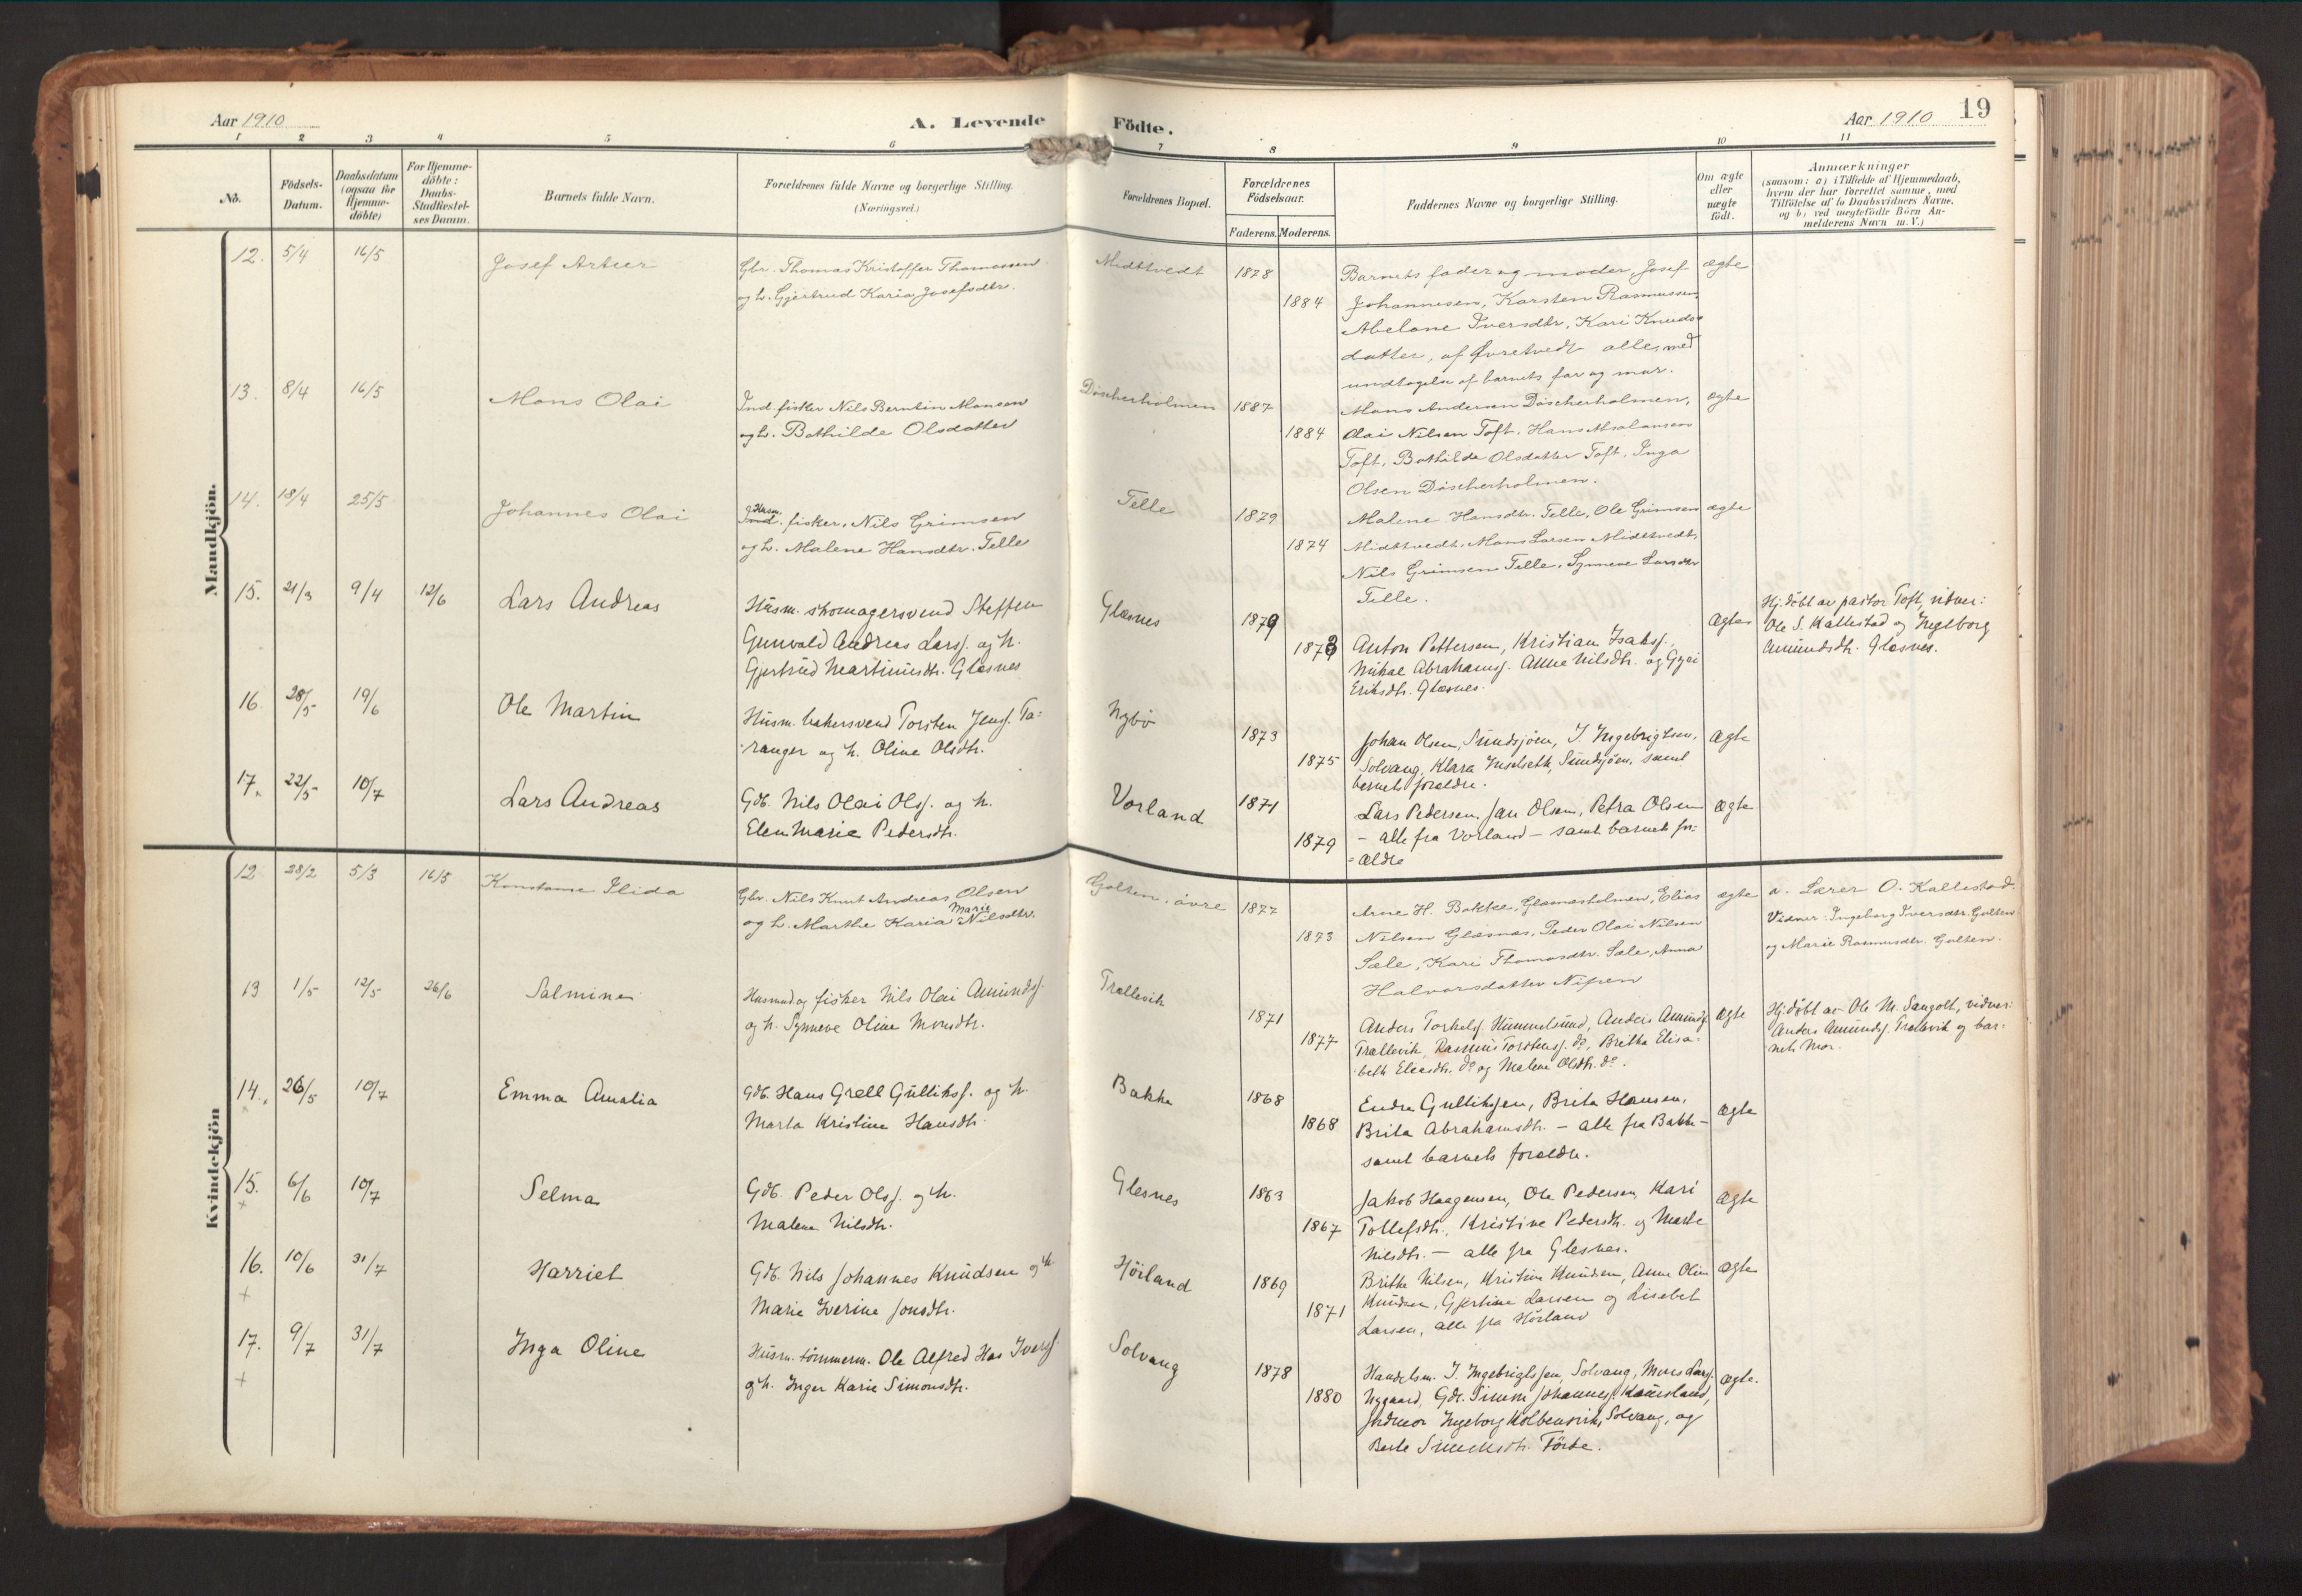 Aar 1910
A. Levende
Födte.
Aar 1910
19
1 2 3 4 5 6 7 8 9 10 11
No.
Födsels-
Datum.
Daabsdatum
(ogsaa for
Hjemme-
döbte)
For Hjemme-
döbte:
Daabs-
Stadfæstel-
ses Datum.
Barnets fulde Navn.
Forældrenes fulde Navne og borgerlige Stilling.
(Næringsvei.)
Forældrenes Bopæl.
Forældrenes
Födselsaar.
Faderens. Moderens.
Faddernes Navne og borgerlige Stilling.
Om ægte
eller
uægte
födt.
Anmærkninger
(saasom: a) i Tilfælde af Hjemmedaab,
hvem der har forrettet samme, med
Tilföielse af to Daabsvidners Navne,
og b) ved uægtefödte Börn An-
melderens Navn m. V.)
Mandkjön.
12. 5/4 16/5
Josef Artur
Gbr. Thomas Kristoffer Thomassen
og h. Gjertrud Karia Josefsdtr.
Midttvedt
1878
1884
Barnets fader og moder, Josef
Johannesen, Karsten Rasmussen,
Abelone Iversdtr, Kari Knuds-
datter, af Øvretvedt alle, med
undtagelse af barnets far og mor.
ægte
13. 8/4 16/5
Mons Olai
Ind. fisker Nils Berntin Monsen
og h. Bothilde Olsdatter
Döscherholmen
1887
1884
Mons Andersen Döscherholmen,
Olai Nilsen Toft. Hans Absalonsen
Toft, Bothilde Olsdatter Toft, Inga
Olsen Döscherholmen.
ægte
14. 18/4 25/5
Johannes Olai
Husm.
Ind. fisker, Nils Grimsen
og h. Malene Hansdtr. Telle
Telle
1879
1874
Malene Hansdtr. Telle, Ole Grimsen
Midttvedt, Mons Larsen Midttvedt,
Nils Grimsen Telle, Synneve Larsdtr
Telle.
ægte
15. 21/3 9/4 12/6
Lars Andreas
Husm. skomagersvend Steffen
Gunvald Andreas Larss. og h.
Gjertrud Martinusdtr. Glesnes
Glæsnes
1879
1873
Anton Pettersen, Kristian Isakss.,
Mikal Abrahams. Anne Nilsdtr. og Gyri
Eriksdtr. Glæsnes.
Ægte
Hj. döbt av pastor Toft, vidner:
Ole S. Kallestad og Ingeborg
Amundsdtr. Glesnes.
16. 28/5 19/6
Ole Martin
Husm. bakersvend Torsten Jenss. Ta=
ranger og h. Oline Olsdtr.
Nybö
1873
1875
Johan Olsen, Sundsjöen, I. Ingebrigtsen,
Solvang, Klara Inselseth, Sundsjöen, samt
barnets foreldre.
Ægte
17. 22/5 10/7
Lars Andreas
Gdb. Nils Olai Olss. og h.
Elen Marie Pedersdtr.
Vorland
1871
1879
Lars Pedersen, Jan Olsen, Petra Olsen
– alle fra Vorland – samt barnets for=
=ældre
Ægte
Kvindekjön
12 28/2 5/3 16/5
Konstanse Ilida
Gbr. Nils Knut Andreas Olsen
og h. Marthe Karia Marie Nilsdtr.
Golten, övre
1877
1873
Arne H. Bakke, Glæsnesholmen, Elias
Nilsen Glæsnes, Peder Olai Nilsen
Sæle, Kari Thomasdtr. Sæle, Anna
Halvorsdatter Nipen
ægte
a. Lærer O. Kallestad.
Vidner: Ingeborg Iversdtr. Golten
og Marie Rasmusdtr. Golten.
13 1/5 12/5 26/6
Salmine
Husmand og fisker Nils Olai Amundss.
og h. Synneve Oline Monsdtr.
Trællevik
1871
1877
Anders Torkels. Hummelsund, Anders Amunds.
Trællevik, Rasmus Torstens. do, Britha Elisa=
beth Eliasdtr. do og Malene Olsdtr. do.
Ægte
Hj. döbt av Ole M. Sangolt, vidner:
Anders Amunds. Trælevik og bar=
nets mor.
14. 26/5 10/7
Emma Amalia
Gdb. Hans Grell Gullikss. og h.
Marta Kristine Hansdtr.
Bakke
1868
1868
Endre Gulliksen, Brita Hansen,
Brita Abrahamsdtr. – alle fra Bakke –
samt barnets foreldre.
Ægte
15. 6/6 10/7
Selma
Gdb. Peder Olss. og h.
Malene Nilsdtr.
Glesnes
1863
1867
Jakob Haagensen, Ole Pedersen, Kari
Tollefsdtr., Kristine Pedersdtr. og Marte
Nilsdtr. – alle fra Glesnes.
Ægte
16. 10/6 31/7
Harriet
Gdb. Nils Johannes Knudsen og h.
Marie Iverine Jonsdtr.
Hörland
1869
1871
Brithe Nilsen, Kristine Knudsen, Anne Oline
Knudsen, Gjertine Larsen og Lisebet
Larsen, alle fra Hörland
Ægte
17. 9/7 31/7
Inga Oline
Husm. tömmerm. Ole Alfred Has Ivers.
og h. Inger Karie Simonsdtr.
Solvang
1878
1880
Handelsm. I. Ingebrigtssen, Solvang, Mons Lars.
Nygaard, Gdr. Simon Johanness. Kausland,
Jordmor Ingeborg Kolbensvik, Solvang, og
Berte Simonsdtr. Förde.
Ægte.